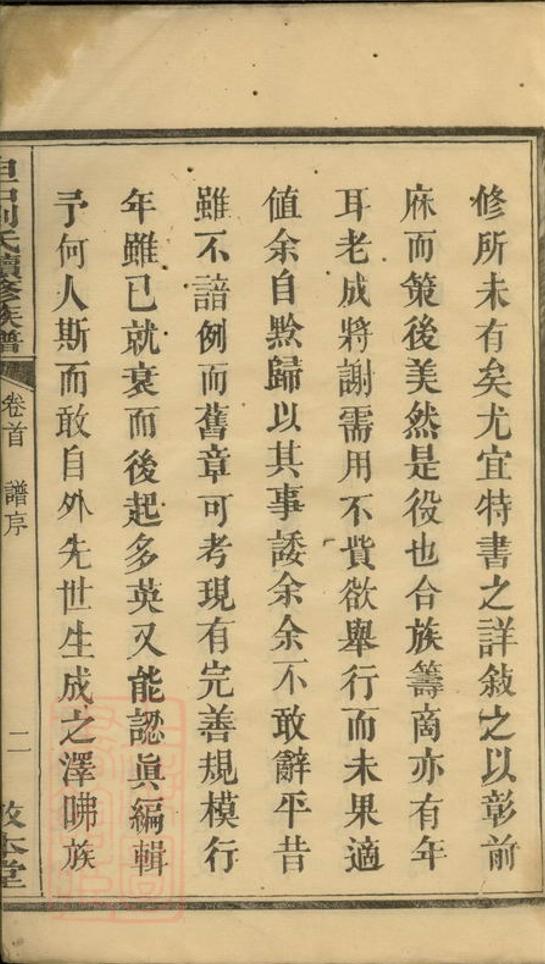 修所未有矣尤宜特書之詳敍之以彰前
庥而策後美然是役也合族籌啇亦有年
耳老成將謝需用不貲欲舉行而未果適
值余自黔歸以其事諉余余不敢辭平昔
雖不諳例而舊章可考現有完善規模行
年雖已就衰而後起多英又能認眞編輯
予何人斯而敢自外先世生成之澤咈族
劉氏續修族譜
卷首 譜序
二
本堂